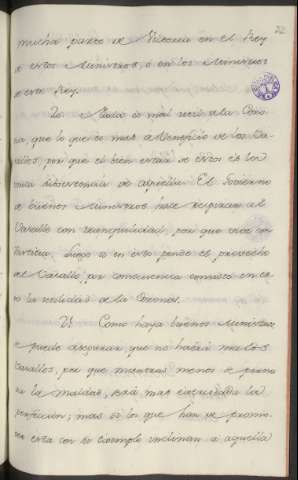 mucha parte de Victoria en el Rey
a estos Ministros, o en los Ministros
a este Rey.
Nada es mas util a la Coro
na, que lo que es mas a Beneficio de los Va
sallos, por que el bien estar de estos es
una de
El Govierno
a buenos Ministros hace respirar al
Vasallo con tranquilidad, por que vive con
Justicia. Luego si en esto pende el provecho
del Vasallo, por consecuencia consiste en es
to la utilidad de la Corona.
Como haya buenos Ministros
se puede asegurar que no habrá malos
Vasallos, por que mientras menos se
la maldad, será mas
la
perfeccion; mas si los que han de promo
ver esta con su exemplo inclinan a aquella